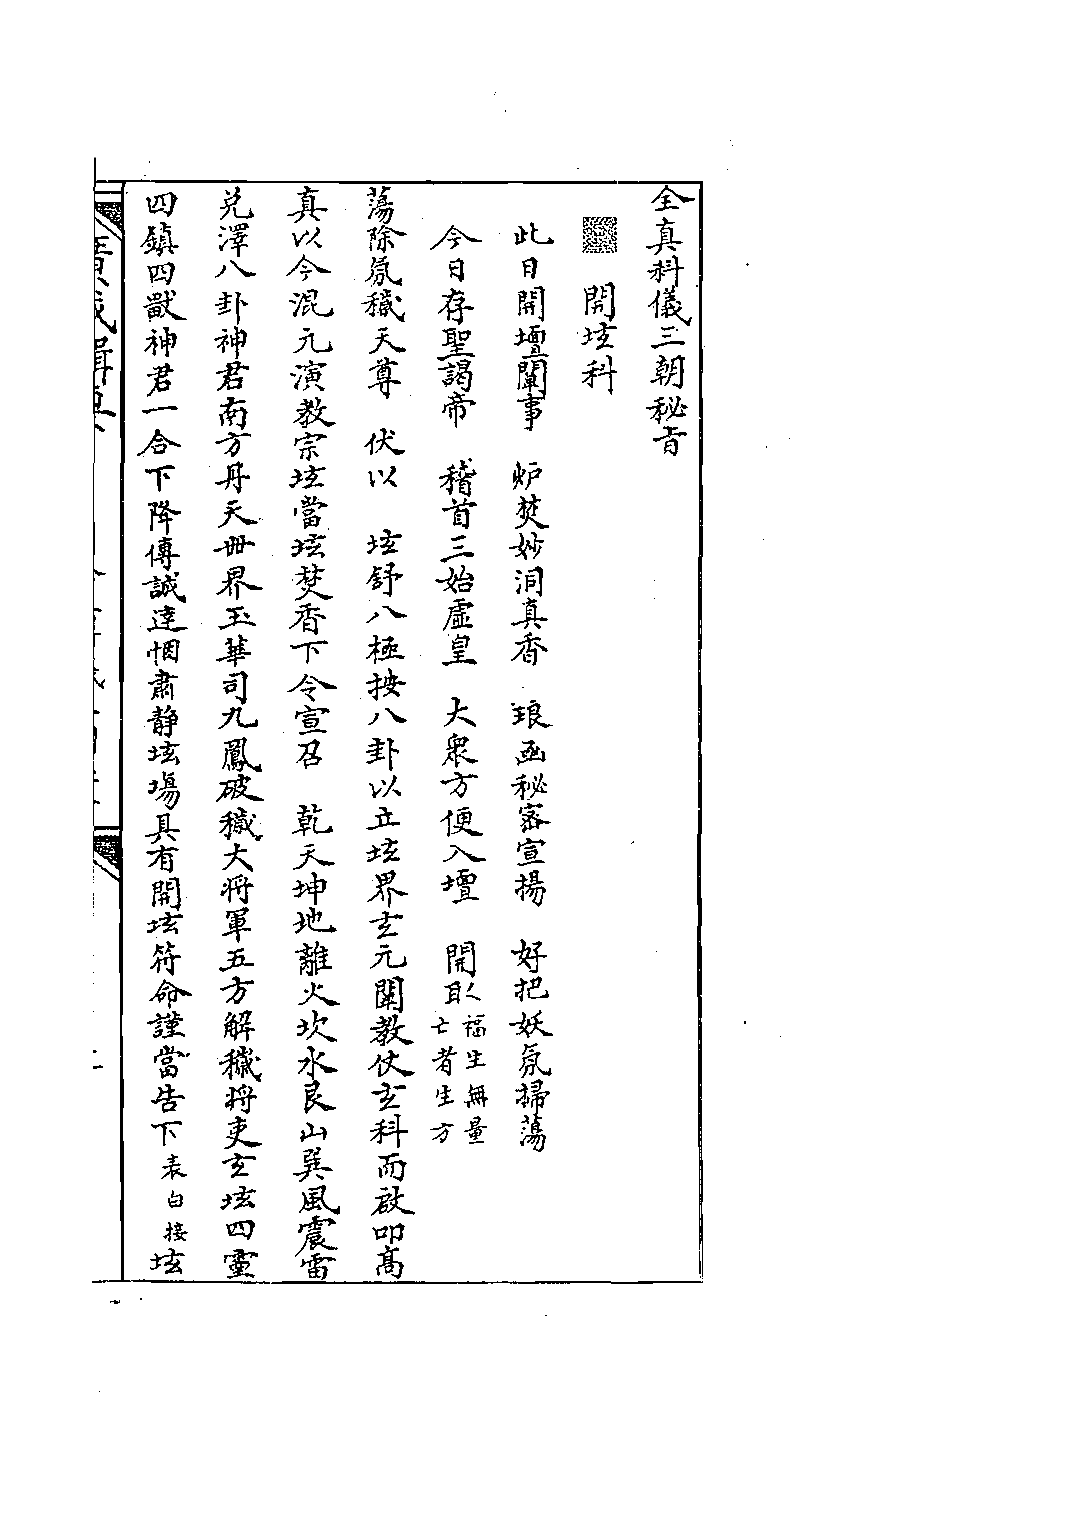 全真科儀三朝秘旨
開坛科
此日開壇闡事　炉焚妙洞真香　琅函秘密宣揚　好把妖氛掃蕩
今日存聖謁帝　稽首三始虛皇　大衆方便入壇　開取人福生無量亡者生方
蕩除氛穢天尊　伏以　坛舒八極按八卦以立坛界玄元闡教仗玄科而啟叩高
真以今混元演教宗坛當坛焚香下令宣召　乾天坤地離火坎水艮山巽風震雷
兑澤八卦神君南方丹天世界玉華司九鳳破穢大将軍五方解穢将吏玄坛四靈
四鎮四獸神君一合下降傳誠達悃肅静坛場具有開坛符命謹當告下表白接坛